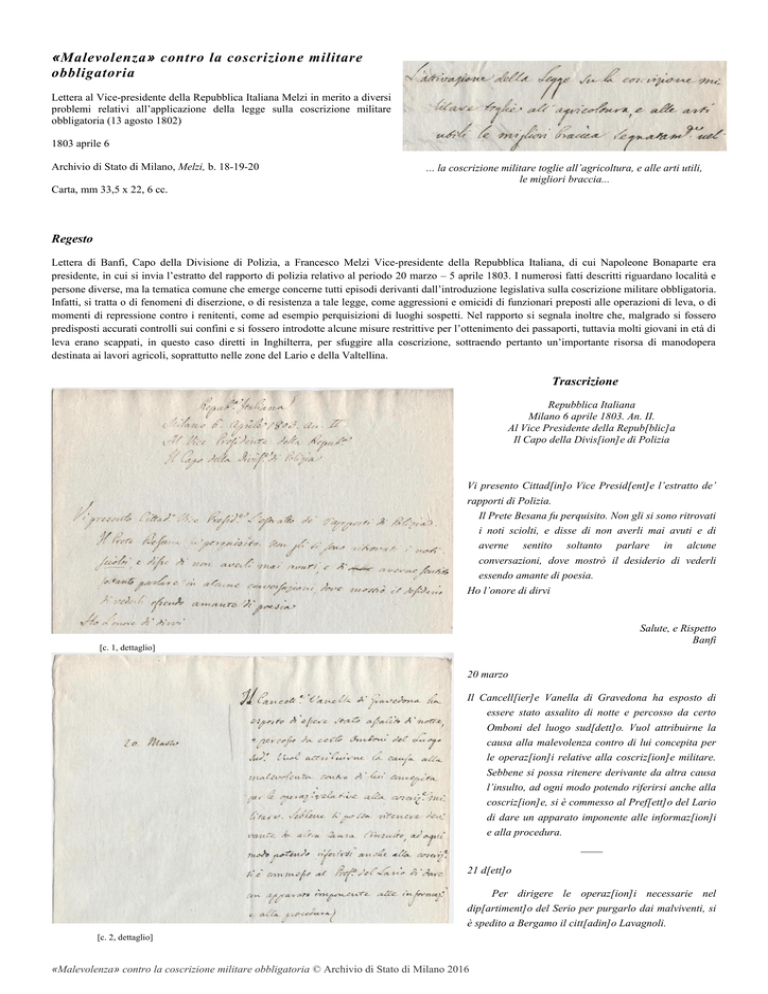 «Malevolenza» contro la coscrizione militare
obbligatoria
Lettera al Vice-presidente della Repubblica Italiana Melzi in merito a diversi
problemi relativi all’applicazione della legge sulla coscrizione militare
obbligatoria (13 agosto 1802)
1803 aprile 6
Archivio di Stato di Milano, Melzi, b. 18-19-20
Carta, mm 33,5 x 22, 6 cc.
L'attivazione della Legge su la coscrizione mi
litare toglie all'agricoltura, e alle arti
utili le migliori braccia segnatam.e nel
... la coscrizione militare toglie all’agricoltura, e alle arti utili,
le migliori braccia...
Regesto
Lettera di Banfi, Capo della Divisione di Polizia, a Francesco Melzi Vice-presidente della Repubblica Italiana, di cui Napoleone Bonaparte era
presidente, in cui si invia l’estratto del rapporto di polizia relativo al periodo 20 marzo – 5 aprile 1803. I numerosi fatti descritti riguardano località e
persone diverse, ma la tematica comune che emerge concerne tutti episodi derivanti dall’introduzione legislativa sulla coscrizione militare obbligatoria.
Infatti, si tratta o di fenomeni di diserzione, o di resistenza a tale legge, come aggressioni e omicidi di funzionari preposti alle operazioni di leva, o di
momenti di repressione contro i renitenti, come ad esempio perquisizioni di luoghi sospetti. Nel rapporto si segnala inoltre che, malgrado si fossero
predisposti accurati controlli sui confini e si fossero introdotte alcune misure restrittive per l’ottenimento dei passaporti, tuttavia molti giovani in età di
leva erano scappati, in questo caso diretti in Inghilterra, per sfuggire alla coscrizione, sottraendo pertanto un’importante risorsa di manodopera
destinata ai lavori agricoli, soprattutto nelle zone del Lario e della Valtellina.
Repub.a Italiana
Milano 6. Aprile 1803. An. II
Al Vice Presidente della Repub.a
Il Capo della Divis.e di Polizia
Vi presento Cittad.o Vice Presid.e l'estratto de' rapporti di Polizia
Il Prete Besana fu perquisito. Non gli si sono ritrovati i noti
sciolti, e disse di non averli mai avuti e di averne sentito
soltanto parlare in alcune conversazioni, dove mostrò il desiderio
di vederli essendo amante di poesia
Ho l'onore di dirvi
[c. 1, dettaglio]
Trascrizione
Repubblica Italiana
Milano 6 aprile 1803. An. II.
Al Vice Presidente della Repub[blic]a
Il Capo della Divis[ion]e di Polizia
Vi presento Cittad[in]o Vice Presid[ent]e l’estratto de’
rapporti di Polizia.
Il Prete Besana fu perquisito. Non gli si sono ritrovati
i noti sciolti, e disse di non averli mai avuti e di
averne sentito soltanto parlare in alcune
conversazioni, dove mostrò il desiderio di vederli
essendo amante di poesia.
Ho l’onore di dirvi
Salute, e Rispetto
Banfi
20. Marzo
Il Cancell.e Vanella di Gravedona ha
esposto di essere stato assalito di notte,
e percosso da certo Omboni del Luogo
sud.o Vuol attribuirne la causa alla
malevolenza contro di lui concepita
per le operaz.i relative alla coscriz.e mi-
litare. Sebbene si possa ritenere deri
vante da altra causa l'insulto, ad ogni
modo potendo riferirsi anche alla coscriz.e
si è commesso al Pref.o del Lario di dare
un apparato imponente alle informaz.i
e alla procedura
[c. 2, dettaglio]
20 marzo
Il Cancell[ier]e Vanella di Gravedona ha esposto di
essere stato assalito di notte e percosso da certo
Omboni del luogo sud[dett]o. Vuol attribuirne la
causa alla malevolenza contro di lui concepita per
le operaz[ion]i relative alla coscriz[ion]e militare.
Sebbene si possa ritenere derivante da altra causa
l’insulto, ad ogni modo potendo riferirsi anche alla
coscriz[ion]e, si è commesso al Pref[ett]o del Lario
di dare un apparato imponente alle informaz[ion]i
e alla procedura.
21 d[ett]o
Per dirigere le operaz[ion]i necessarie nel
dip[artiment]o del Serio per purgarlo dai malviventi, si
è spedito a Bergamo il citt[adin]o Lavagnoli.
«Malevolenza» contro la coscrizione militare obbligatoria © Archivio di Stato di Milano 2016